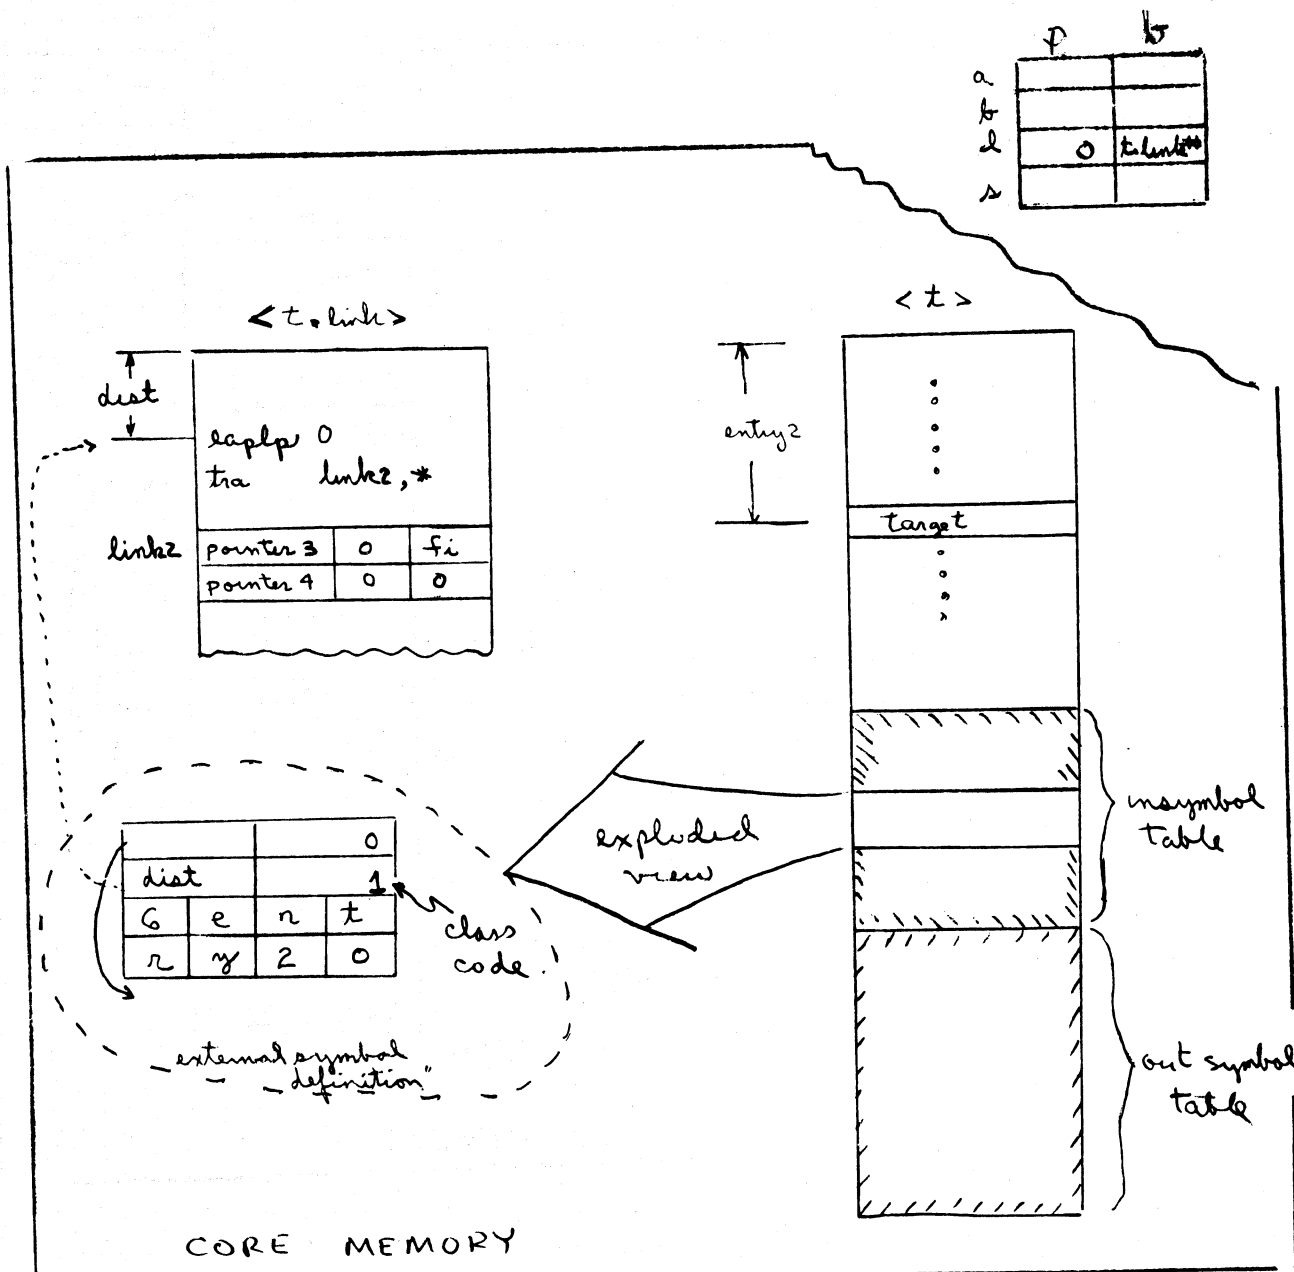 p b
a
b
l 0 t.link**
s
< t.link >
< t >
dist
eaplp 0
tra link2,*
link2 pointer 3 0 fi
pointer 4 0 0
entry2
target
insymbol
table
exploded
view
0
dist 1
6 e n t
r y 2 0
class
code
external symbol
definition"
out symbol
table
CORE MEMORY